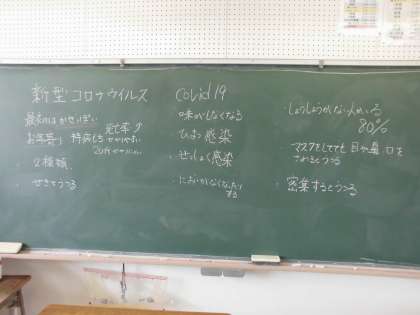 新型コロナウイルス
最初はかぜっぽい
お年寄り 持病もち
2種類
せきでうつる
covid19
味がしなくなる
ひまつ感染
せっしょく感染
においがしなくなったりする
しょうじょうがない人がいる
80%
マスクをしてても目や鼻、口を
さわるとうつる
密集するとうつる